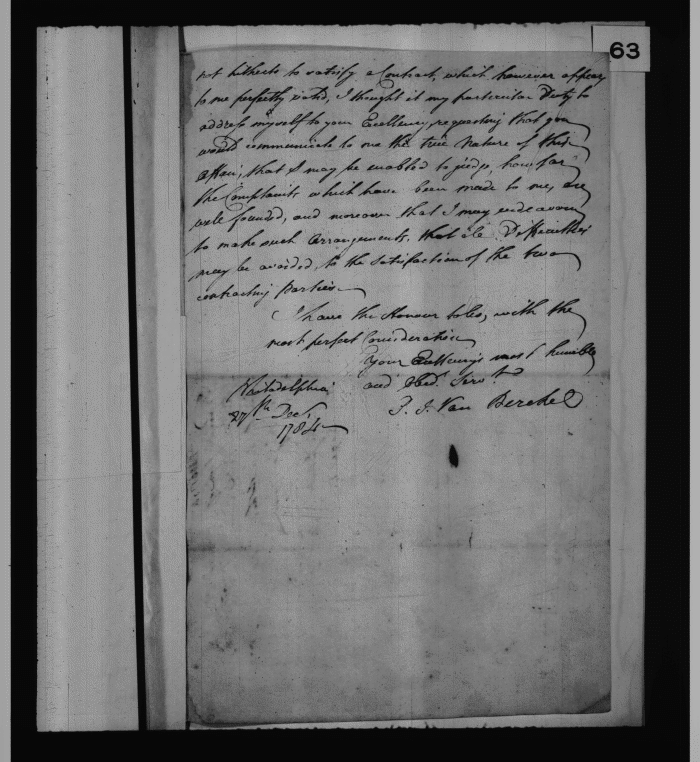 63
not hitherto to ratify a Contract, which however appears
to me perfectly valid, I thought it my particular Duty to
address myself to your Excellency, requesting that you
would communicate to me the true Nature of this
affair, that I may be enabled to judge, how far
the Complaints which have been made to me, are
well founded, and moreover that I may endeavour
to make such arrangements, that all Difficulties
may be avoided, to the Satisfaction of the two
contracting Parties.
I have the Honour to be, with the
most perfect Consideration
Your Excellency's most humble
and Obed. Servt.
Philadelphia
27th Decr.
1784
P. J. Van Berckel